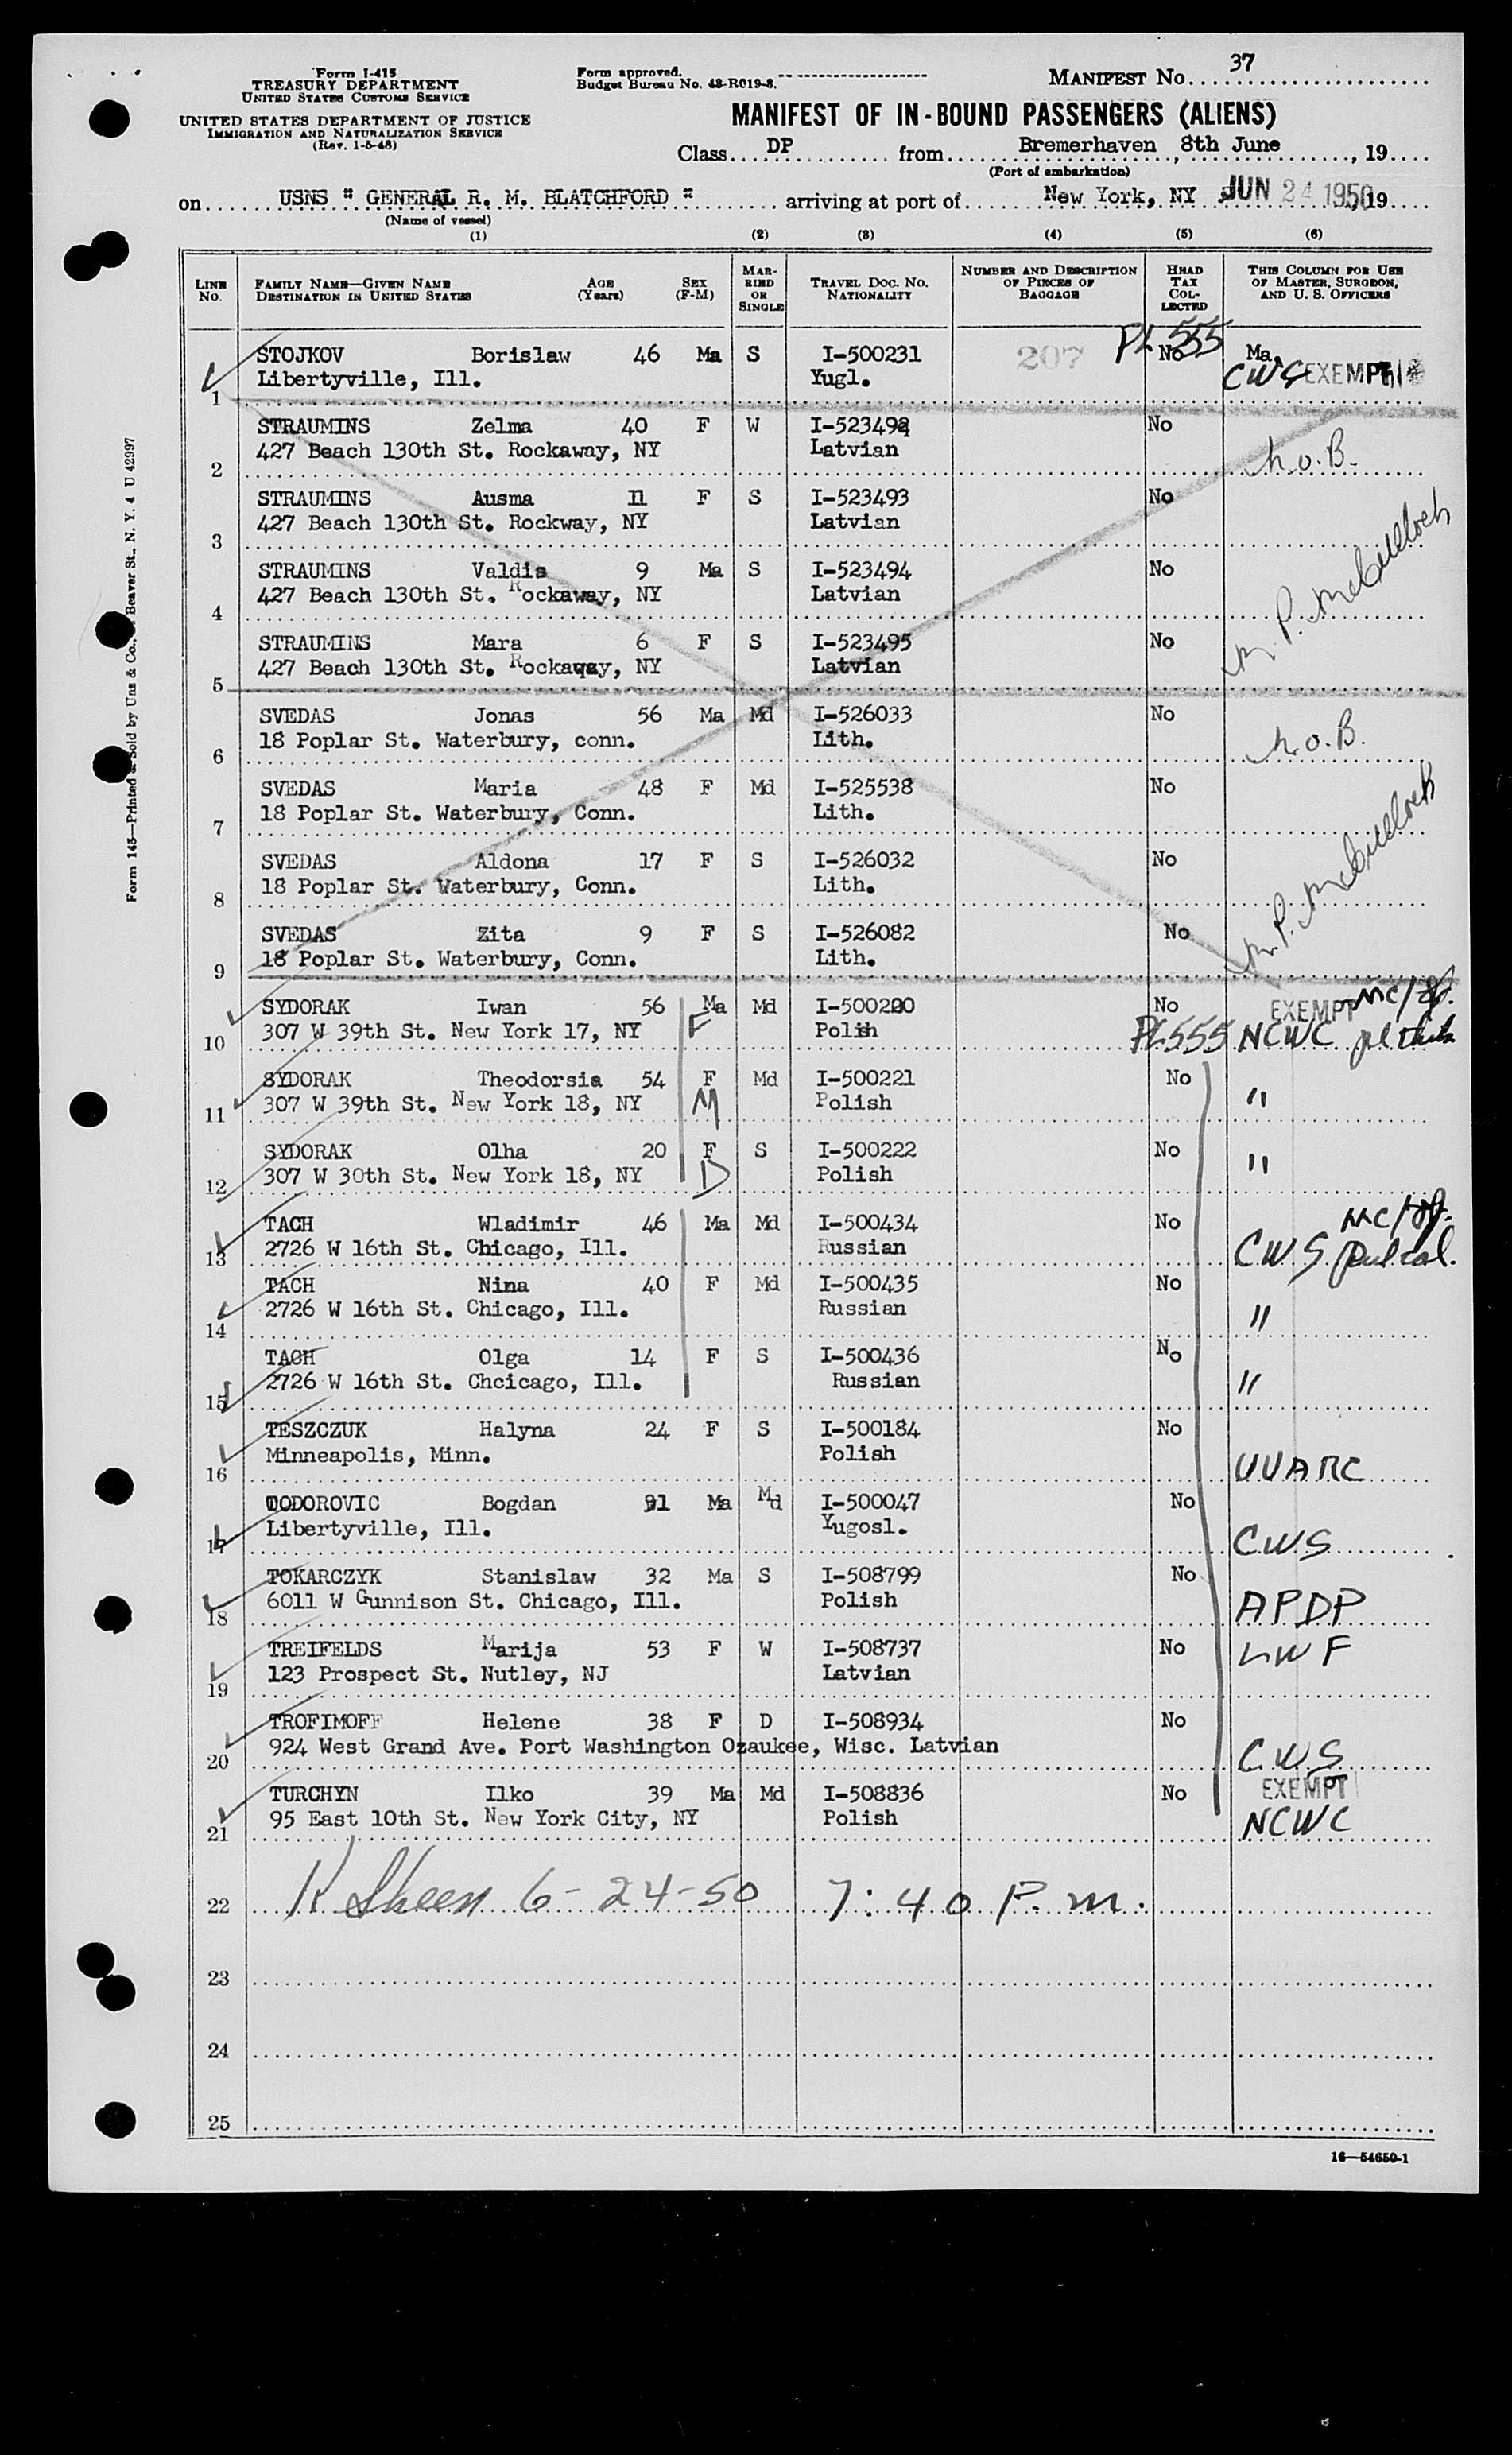 Form I-415
TREASURY DEPARTMENT
UNITED STATES CUSTOMS SERVICE
UNITED STATES DEPARTMENT OF JUSTICE
IMMIGRATION AND NATURALIZATION SERVICE
(Rev. 1-5-48)
Form approved.
Budget Bureau No. 43-R019-3.
MANIFEST No. 37
MANIFEST OF IN-BOUND PASSENGERS (ALIENS)
Class DP from Bremerhaven, 8th June, 19
(Port of embarkation)
on USNS " GENERAL R. M. BLATCHFORD " arriving at port of New York, NY JUN 24 1950, 19
(Name of vessel)
(1) (2) (3) (4) (5) (6)
LINE No. FAMILY NAME—GIVEN NAME DESTINATION IN UNITED STATES AGE (Years) SEX (F-M) MARRIED OR SINGLE TRAVEL DOC. NO. NATIONALITY NUMBER AND DESCRIPTION OF PIECES OF BAGGAGE HEAD TAX COLLECTED THIS COLUMN FOR USE OF MASTER, SURGEON, AND U. S. OFFICERS
STOJKOV Borislaw 46 Ma S I-500231 207 PL 555 No Ma
1 Libertyville, Ill. Yugl. CWS EXEMPT
STRAUMINS Zelma 40 F W I-523492 No
2 427 Beach 130th St. Rockaway, NY Latvian N.o.B.
STRAUMINS Ausma 11 F S I-523493 No
3 427 Beach 130th St. Rockway, NY Latvian
STRAUMINS Valdis 9 Ma S I-523494 No
4 427 Beach 130th St. Rockaway, NY Latvian M. P. McCulloch
STRAUMINS Mara 6 F S I-523495 No
5 427 Beach 130th St. Rockaway, NY Latvian
SVEDAS Jonas 56 Ma Md I-526033 No
6 18 Poplar St. Waterbury, conn. Lith. N.o.B.
SVEDAS Maria 48 F Md I-525538 No
7 18 Poplar St. Waterbury, Conn. Lith.
SVEDAS Aldona 17 F S I-526032 No
8 18 Poplar St. Waterbury, Conn. Lith. M.P. McCulloch
SVEDAS Zita 9 F S I-526082 No
9 18 Poplar St. Waterbury, Conn. Lith.
SYDORAK Iwan 56 Ma Md I-500220 No EXEMPT
10 307 W 39th St. New York 17, NY F Polish PL555 NCWC
SYDORAK Theodorsia 54 F Md I-500221 No
11 307 W 39th St. New York 18, NY M Polish "
SYDORAK Olha 20 F S I-500222 No
12 307 W 30th St. New York 18, NY D Polish "
TACH Wladimir 46 Ma Md I-500434 No
13 2726 W 16th St. Chicago, Ill. Russian CWS
TACH Nina 40 F Md I-500435 No
14 2726 W 16th St. Chicago, Ill. Russian "
TACH Olga 14 F S I-500436 No
15 2726 W 16th St. Chcicago, Ill. Russian "
TESZCZUK Halyna 24 F S I-500184 No
16 Minneapolis, Minn. Polish UUARC
TODOROVIC Bogdan 31 Ma Md I-500047 No
17 Libertyville, Ill. Yugosl. CWS
TOKARCZYK Stanislaw 32 Ma S I-508799 No
18 6011 W Gunnison St. Chicago, Ill. Polish APDP
TREIFELDS Marija 53 F W I-508737 No LWF
19 123 Prospect St. Nutley, NJ Latvian
TROFIMOFF Helene 38 F D I-508934 No
20 924 West Grand Ave. Port Washington Ozaukee, Wisc. Latvian CWS
TURCHYN Ilko 39 Ma Md I-508836 No EXEMPT
21 95 East 10th St. New York City, NY Polish NCWC
22 K Skeen 6-24-50 7:40 P.m.
23
24
25
16—54650-1
Form 145—Printed & Sold by Unz & Co., Beaver St., N. Y. 4 U 42997